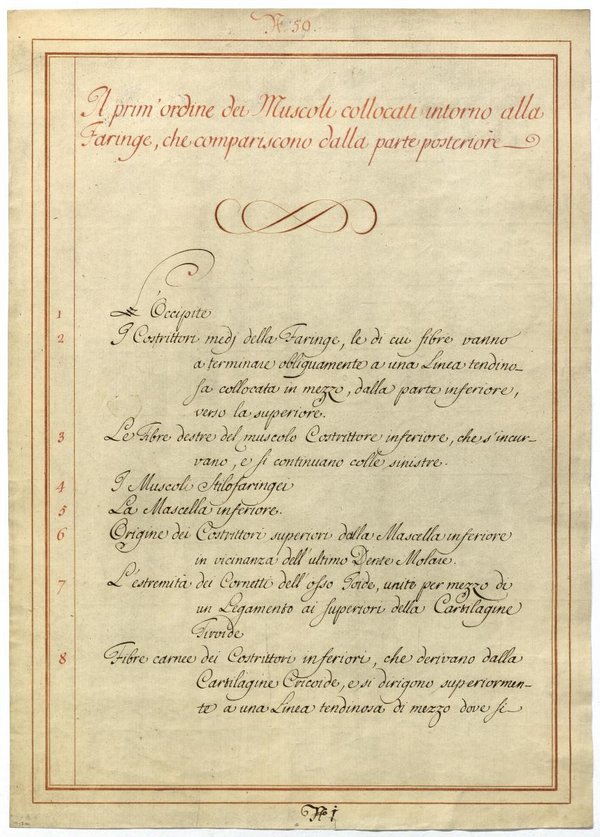 N.º 50.
Il prim' ordine dei Muscoli collocati intorno alla
Faringe, che compariscono dalla parte posteriore
1 L'Occipite
2 I Costrittori medj della Faringe, le di cui fibre vanno
a terminare obliquamente a una Linea tendino-
sa collocata in mezzo, dalla parte inferiore,
verso la superiore.
3 Le Fibre destre del muscolo Costrittore inferiore, che s'incur-
vano, e si continuano colle sinistre.
4 I Muscoli Stilofaringei
5 La Mascella inferiore.
6 Origine dei Costrittori superiori dalla Mascella inferiore
in vicinanza dell'ultimo Dente Molare.
7 L'estremità dei Cornetti dell'osso Ioide, unite per mezzo di
un Legamento ai superiori della Cartilagine
Tiroide
8 Fibre carnee dei Costrittori inferiori, che derivano dalla
Cartilagine Cricoide, e si dirigono superiormen-
te a una Linea tendinosa di mezzo dove si